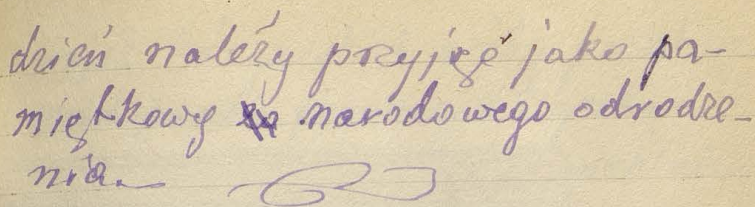 dzień należy przyjąć jako pa-
miętkowy narodowego odrodze-
nia.